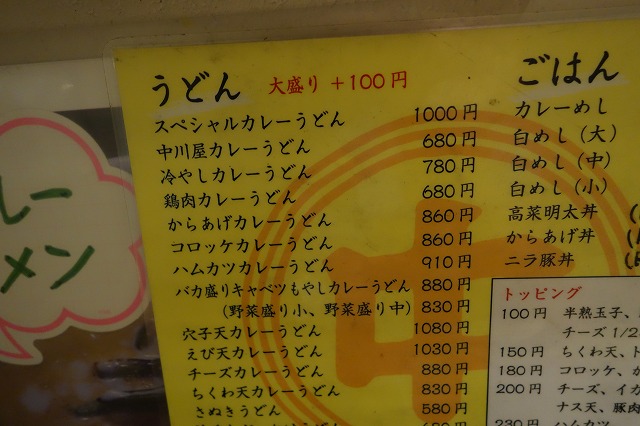 うどん 大盛り +100円
スペシャルカレーうどん 1000円
中川屋カレーうどん 680円
冷やしカレーうどん 780円
鶏肉カレーうどん 680円
からあげカレーうどん 860円
コロッケカレーうどん 860円
ハムカツカレーうどん 910円
バカ盛りキャベツもやしカレーうどん 880円
(野菜盛り小、野菜盛り中) 830円
穴子天カレーうどん 1080円
えび天カレーうどん 1030円
チーズカレーうどん 880円
ちくわ天カレーうどん 830円
さぬきうどん 580円
ごはん
カレーめし
白めし(大)
白めし(中)
白めし(小)
高菜明太丼
からあげ丼
ニラ豚丼
トッピング
100円 半熟玉子、
チーズ1/2
150円 ちくわ天、
180円 コロッケ、
200円 チーズ、イカ
ナス天、豚肉
230円 ハムカツ
レー
メン